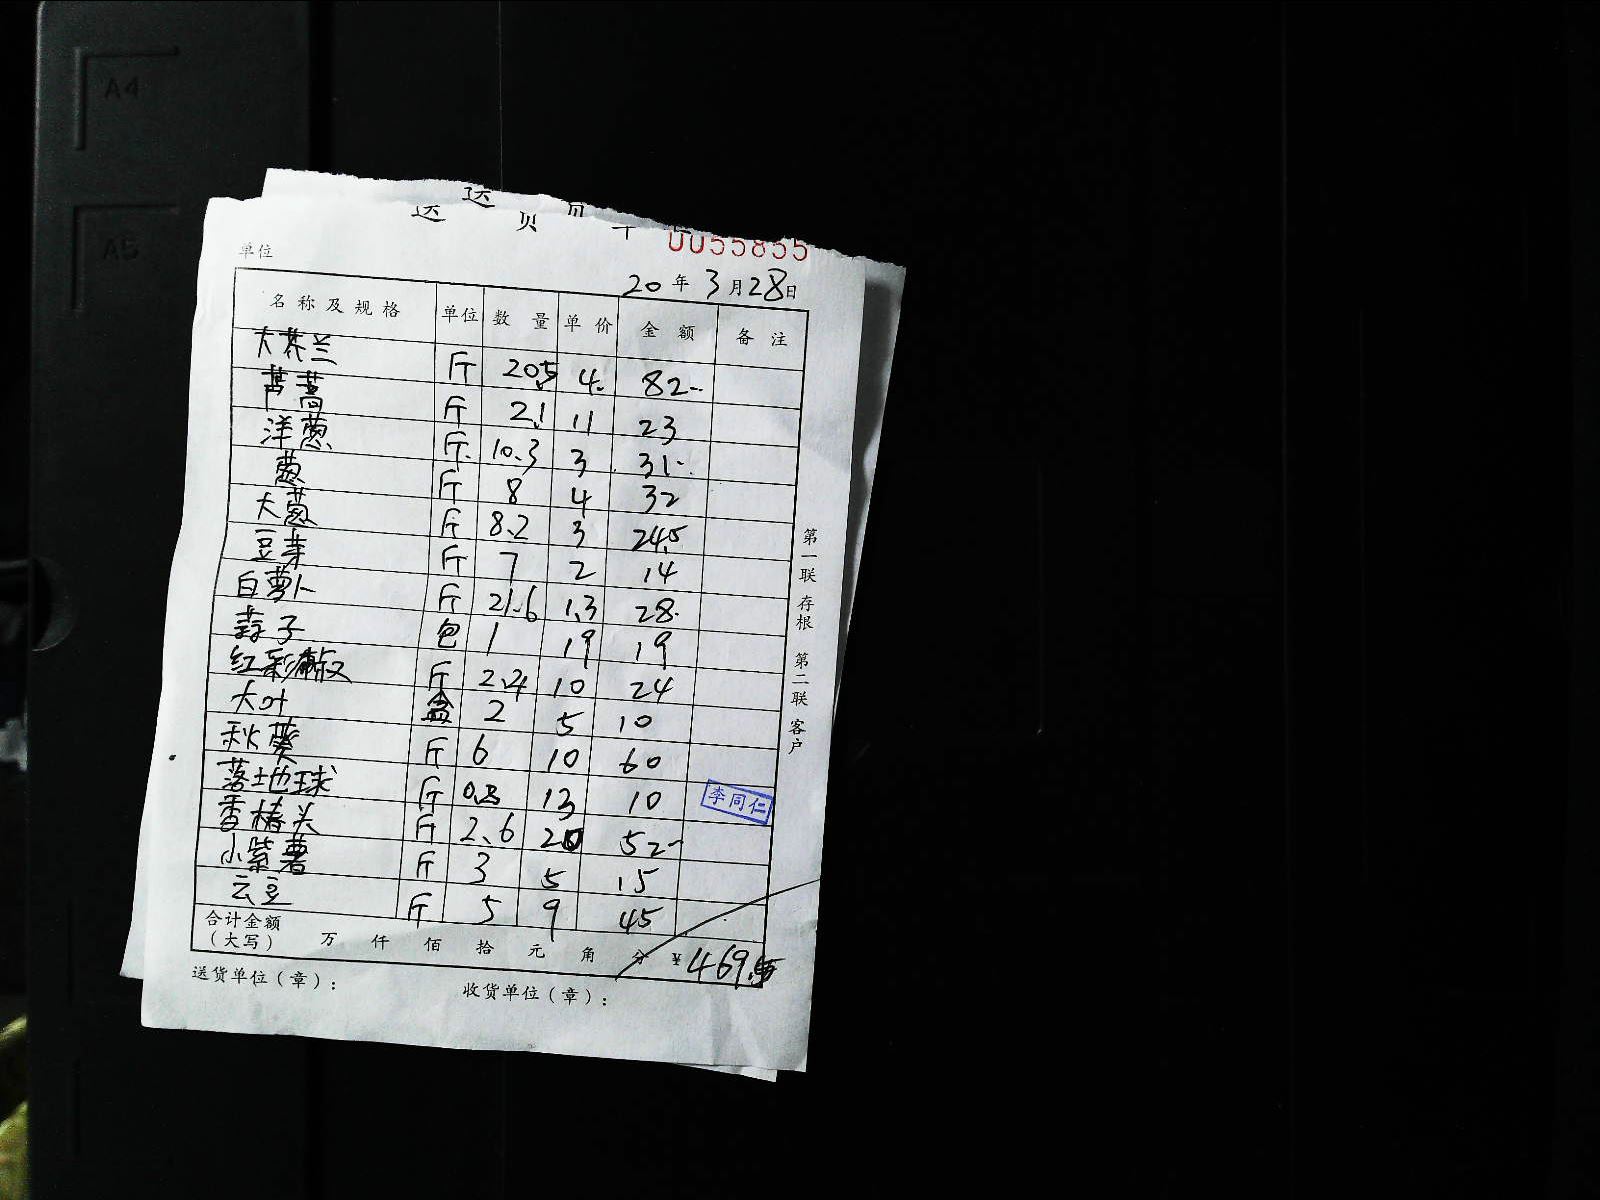 A4
A5
送
送 货 单
0055855
单位
20 年 3 月 28 日
名称及规格 单位 数量 单价 金额 备注
大芥兰 斤 20.5 4. 82--
茼蒿 斤 2.1 11 23
洋葱 斤. 10.3 3 31-.
葱 斤 8 4 32
大葱 斤 8.2 3 24.5
豆芽 斤 7 2 14
白萝卜 斤 21.6 1.3 28.
蒜子 包 1 19 19
红彩椒 斤 2.4 10 24
大叶 盒 2 5 10
秋葵 斤 6 10 60
落地球 斤 0.8 13 10
香椿头 斤 2.6 20 52-
小紫薯 斤 3 5 15
云豆 斤 5 9 45
合计金额
(大写) 万 仟 佰 拾 元 角 分 ¥469.5
送货单位(章): 收货单位(章):
第一联 存根 第二联 客户
李同仁